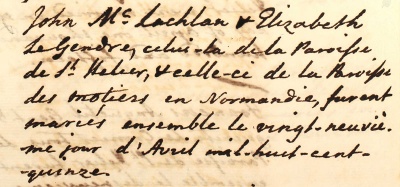 John Mc Lachlan & Elizabeth
Le Gendre, celui-la de la Paroisse
de St Helier, & celle-ce de la Paroisse
des motiers en Normandie, furent
mariés ensemble le vingt-neuviè-
me jour d'Avril mil-huit-cent-
quinze.